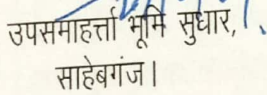 उपसमाहर्त्ता भूमि सुधार,
साहेबगंज।